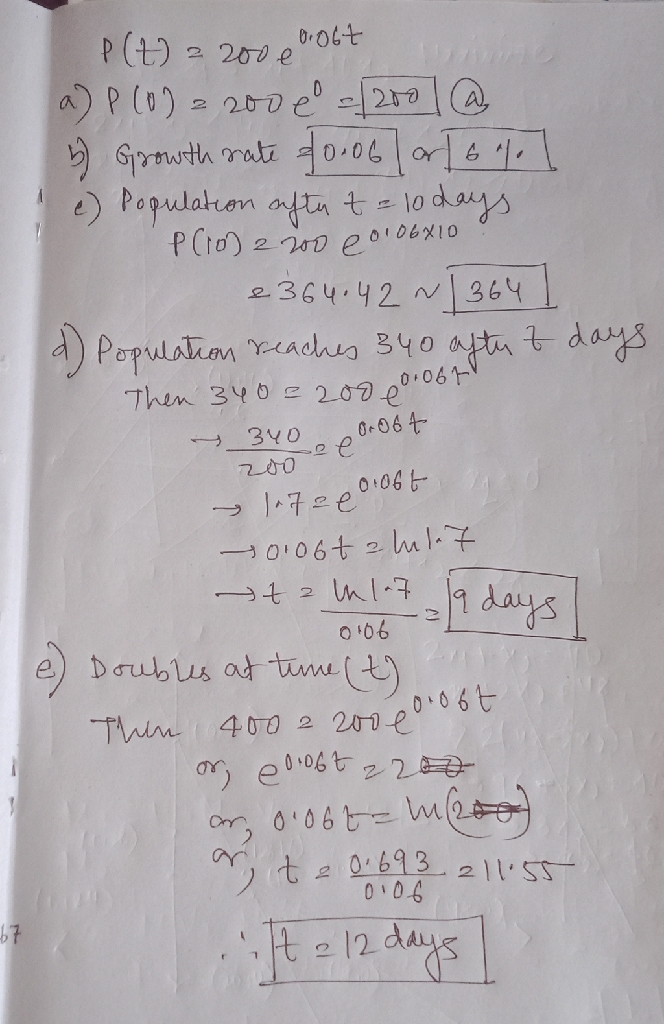 P(t) = 200 e^0.06t
a) P(0) = 200 e^0 = 200 @
b) Growth rate = 0.06 or 6 %
c) Population after t = 10 days
P(10) = 200 e^0.06×10
= 364.42 ~ 364
d) Population reaches 340 after t days
Then 340 = 200 e^0.06t
→ 340/200 = e^0.06t
→ 1.7 = e^0.06t
→ 0.06t = ln 1.7
→ t = ln 1.7/0.06 = 9 days
e) Doubles at time (t)
Then 400 = 200 e^0.06t
or, e^0.06t = 2
or, 0.06t = ln(2)
or, t = 0.693/0.06 = 11.55
∴ t = 12 days
67